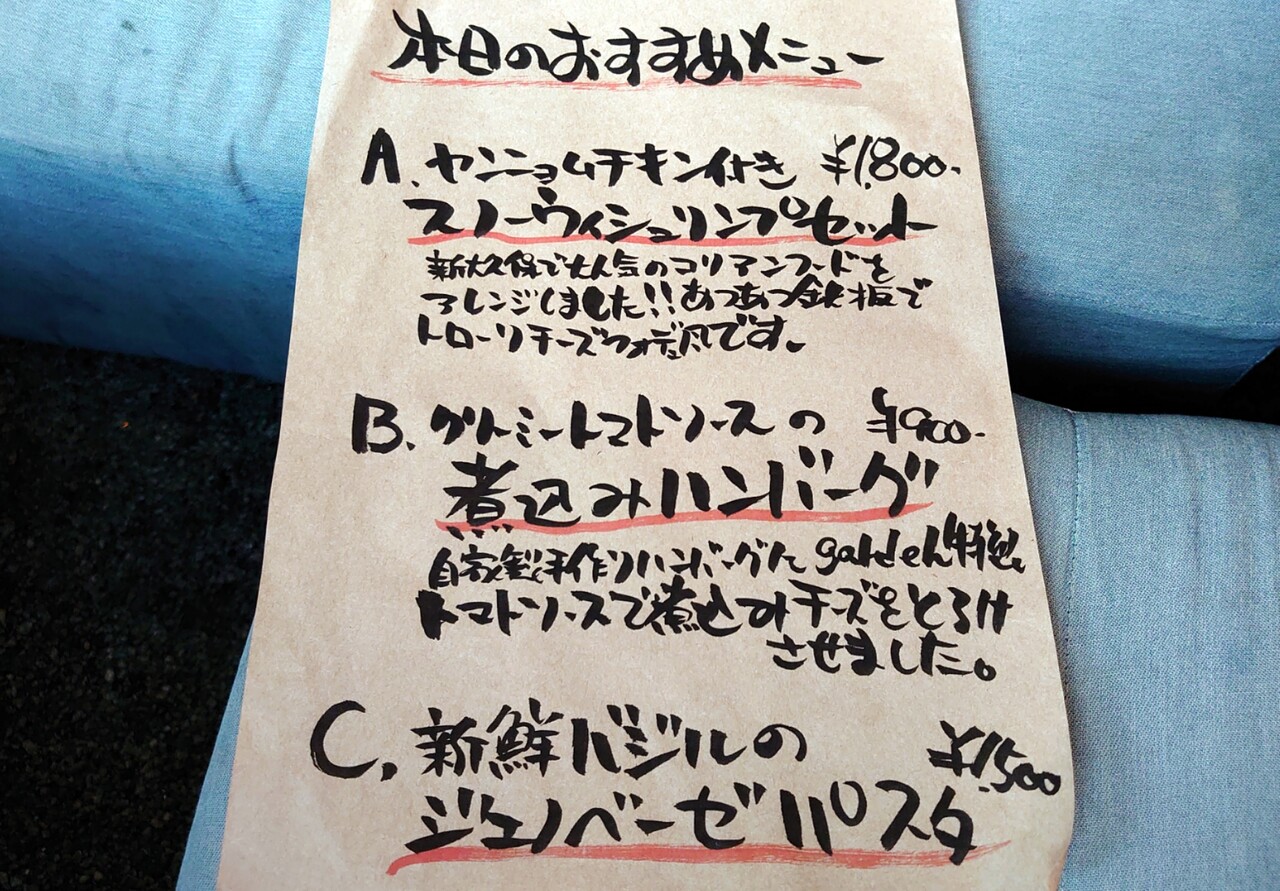 本日のおすすめメニュー
A. ヤンニョムチキン付き ¥1,800-
スノーウィシュリンプセット
新大久保で大人気のコリアンフードを
アレンジしました!!あつあつ鉄板で
トローリチーズフォデュ風です。
B. クリーミートマトソースの ¥900-
煮込みハンバーグ
自家製手作りハンバーグを garden特製
トマトソースで煮込みチーズをとろけ
させました。
C. 新鮮バジルの ¥1,500
ジェノベーゼパスタ